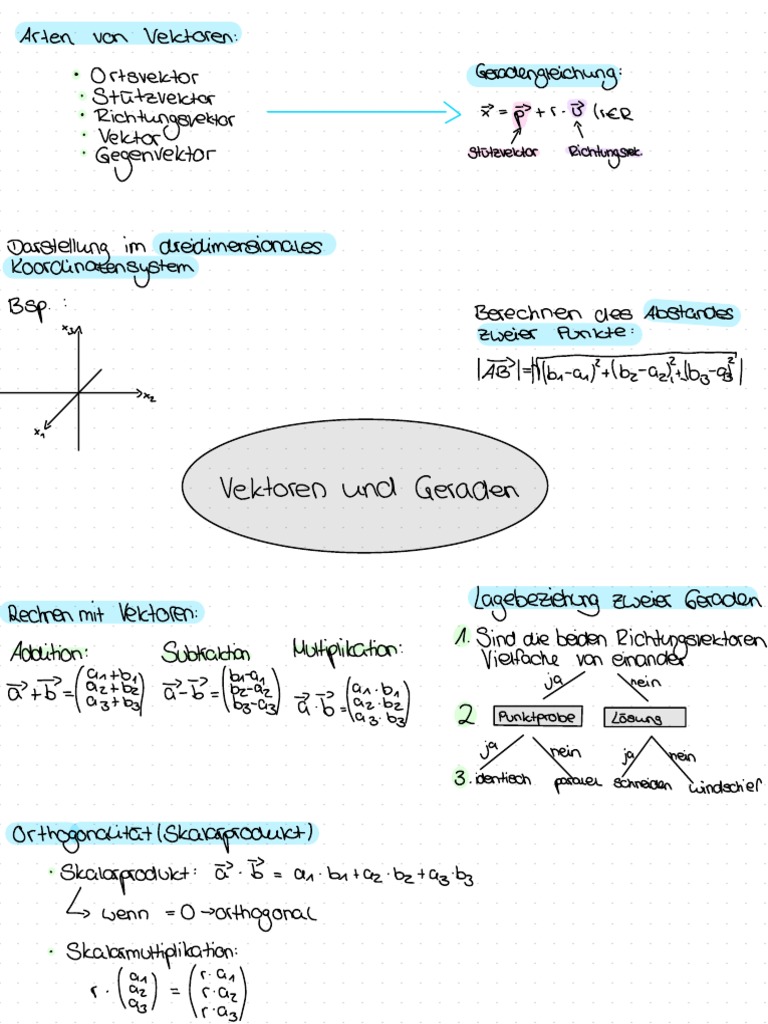 Arten von Vektoren:
• Ortsvektor
• Stützvektor
• Richtungsvektor
• Vektor
• Gegenvektor
Geradengleichung:
x⃗ = p⃗ + r · v⃗ (r∈R
Stützvektor Richtungsvek.
Darstellung im dreidimensionales
Koordinatensystem
Bsp.:
x3
x2
x1
Berechnen des Abstandes
zweier Punkte:
|AB⃗|=|√(b1-a1)²+(b2-a2)²+(b3-a3)²|
Vektoren und Geraden
Rechnen mit Vektoren:
Addition: Subtraktion Multiplikation:
a⃗+b⃗=(a1+b1
a2+b2
a3+b3)
a⃗-b⃗=(b1-a1
b2-a2
b3-a3)
a⃗·b⃗=(a1·b1
a2·b2
a3·b3)
Lagebeziehung zweier Geraden
1. Sind die beiden Richtungsvektoren
Vielfache von einander
ja nein
2 Punktprobe Lösung
ja nein ja nein
3. identisch parallel schneiden windschief
Orthogonalität (Skalarprodukt)
• Skalarprodukt: a⃗ · b⃗ = a1·b1+a2·b2+a3·b3
↳ wenn =0→orthogonal
• Skalarmultiplikation:
r · (a1
a2
a3) = (r·a1
r·a2
r·a3)